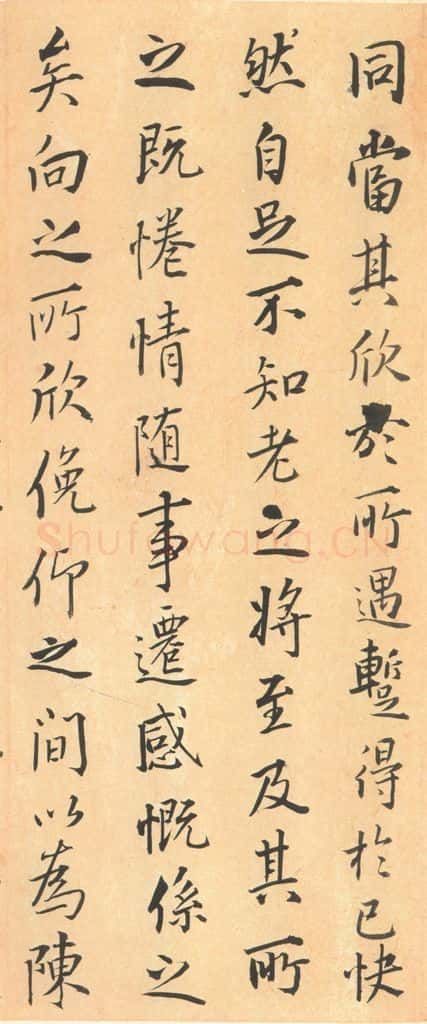 同當其欣於所遇蹔得於己快
然自足不知老之將至及其所
之既惓情随事遷感慨係之
矣向之所欣俛仰之間以為陳
Shufawang.CN